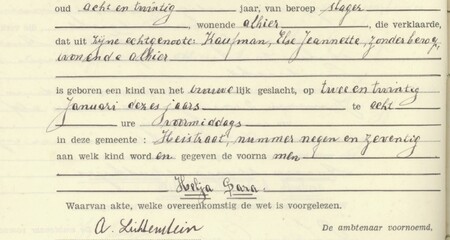 oud acht en twintig jaar, van beroep slager
, wonende alhier, die verklaarde,
dat uit zijne echtgenoote: Kaufman, Else Jeannette, zonder beroep,
wonende alhier
is geboren een kind van het vrouwelijk geslacht, op twee en twintig
Januari dezes jaars te acht
ure voormiddags
in deze gemeente: Heistraat, nummer negen en zeventig
aan welk kind worden gegeven de voornamen
Helja Sara.
Waarvan akte, welke overeenkomstig de wet is voorgelezen.
A. Lichtenstein De ambtenaar voornoemd,